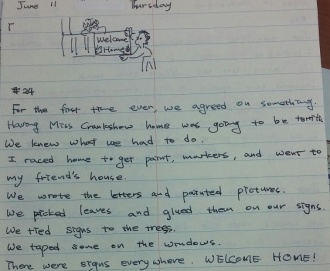 June 11 Thursday
Welcome
Home
#24
For the first time ever, we agreed on something.
Having Miss Crankshaw home was going to be terrific
We knew what we had to do.
I raced home to get paint, markers, and went to
my friend's house.
We wrote the letters and painted pictures.
We picked leaves and glued them on our signs.
We tied signs to the trees.
We taped some on the windows.
There were signs everywhere. WELCOME HOME!